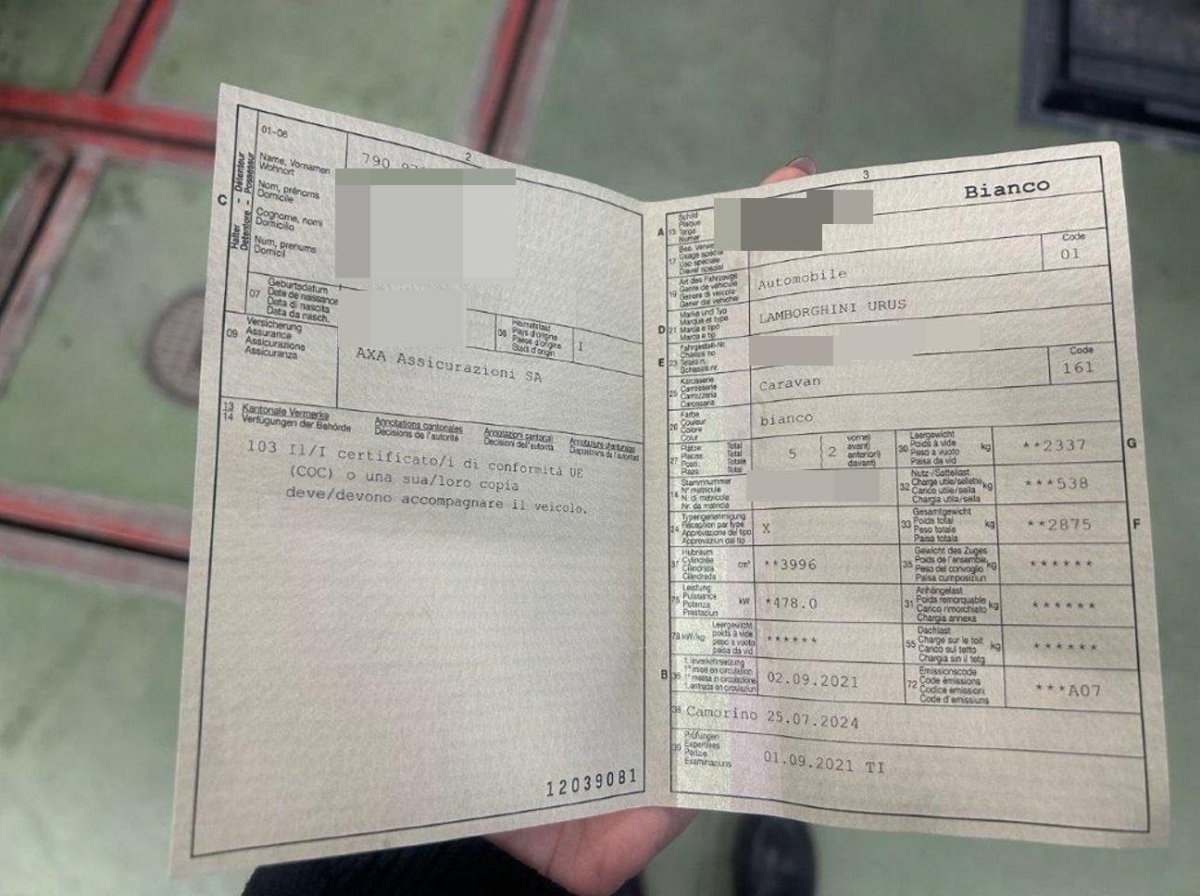 2
01-06
790
C
Halter - Détenteur
Detentore - Possessur
Name, Vornamen
Wohnort
Nom, prénoms
Domicile
Cognome, nomi
Domicilio
Num, prenums
Domicil
07
Geburtsdatum
Date de naissance
Data di nascita
Data da nasch.
08
Heimatstaat
Pays d'origine
Paese d'origine
Stadi d'origin
I
09
Versicherung
Assurance
Assicurazione
Assicuranza
AXA Assicurazioni SA
13
14
Kantonale Vermerke
Verfügungen der Behörde
Annotations cantonales
Décisions de l'autorité
Annotazioni cantonali
Decisioni dell'autorità
Annotaziuns chantunalas
Dispositiuns da l'autoritad
103 Il/I certificato/i di conformità UE
(COC) o una sua/loro copia
deve/devono accompagnare il veicolo.
12039081
3
Bianco
A
15
Schild
Plaque
Targa
Numer
17
Usage spécial
Uso speciale
Diever spezial
Code
01
19
Art des Fahrzeuges
Genre de véhicule
Genere di veicolo
Gener dal vehichel
Automobile
D
21
Marke und Typ
Marque et type
Marca e tipo
Marca e tip
LAMBORGHINI URUS
E
23
Fahrgestell-Nr.
Châssis no
Telaio n.
Schassis nr.
25
Karosserie
Carrosserie
Carrozzeria
Carossaria
Caravan
Code
161
26
Farbe
Couleur
Colore
Colur
bianco
27
Plätze Total
Places Total
Posti Totale
Plazs Total
5
2
vorne)
avant)
anteriori)
davant)
30
Leergewicht
Poids à vide
Peso a vuoto
Paisa da vid
kg
**2337
G
18
Stammnummer
N° matricule
N. di matricola
Nr. da matricla
32
Nutz-/Sattellast
Charge utile/sellette
Carico utile/sella
Chargia utila/sella
kg
***538
24
Typengenehmigung
Réception par type
Approvazione del tipo
Approvaziun dal tip
X
33
Gesamtgewicht
Poids total
Peso totale
Paisa totala
kg
**2875
F
37
Hubraum
Cylindrée
Cilindrata
Cilindrada
cm³
**3996
35
Gewicht des Zuges
Poids de l'ensemble
Peso del convoglio
Paisa cumposiziun
kg
******
76
Leistung
Puissance
Potenza
Prestaziun
kW
*478.0
31
Anhängelast
Poids remorquable
Carico rimorchiato
Chargia annexa
kg
******
78 kW/kg
Leergewicht
poids à vide
peso a vuoto
paisa da vid
******
55
Dachlast
Charge sur le toit
Carico sul tetto
Chargia sin il tetg
kg
******
B
36
1. Inverkehrsetzung
1re mise en circulation
1a messa in circolazione
1. entrada en circulaziun
02.09.2021
72
Emissionscode
Code émissions
Codice emissioni
Code d'emissiuns
***A07
38
Camorino 25.07.2024
39
Prüfungen
Expertises
Perizie
Examinaziuns
01.09.2021 TI